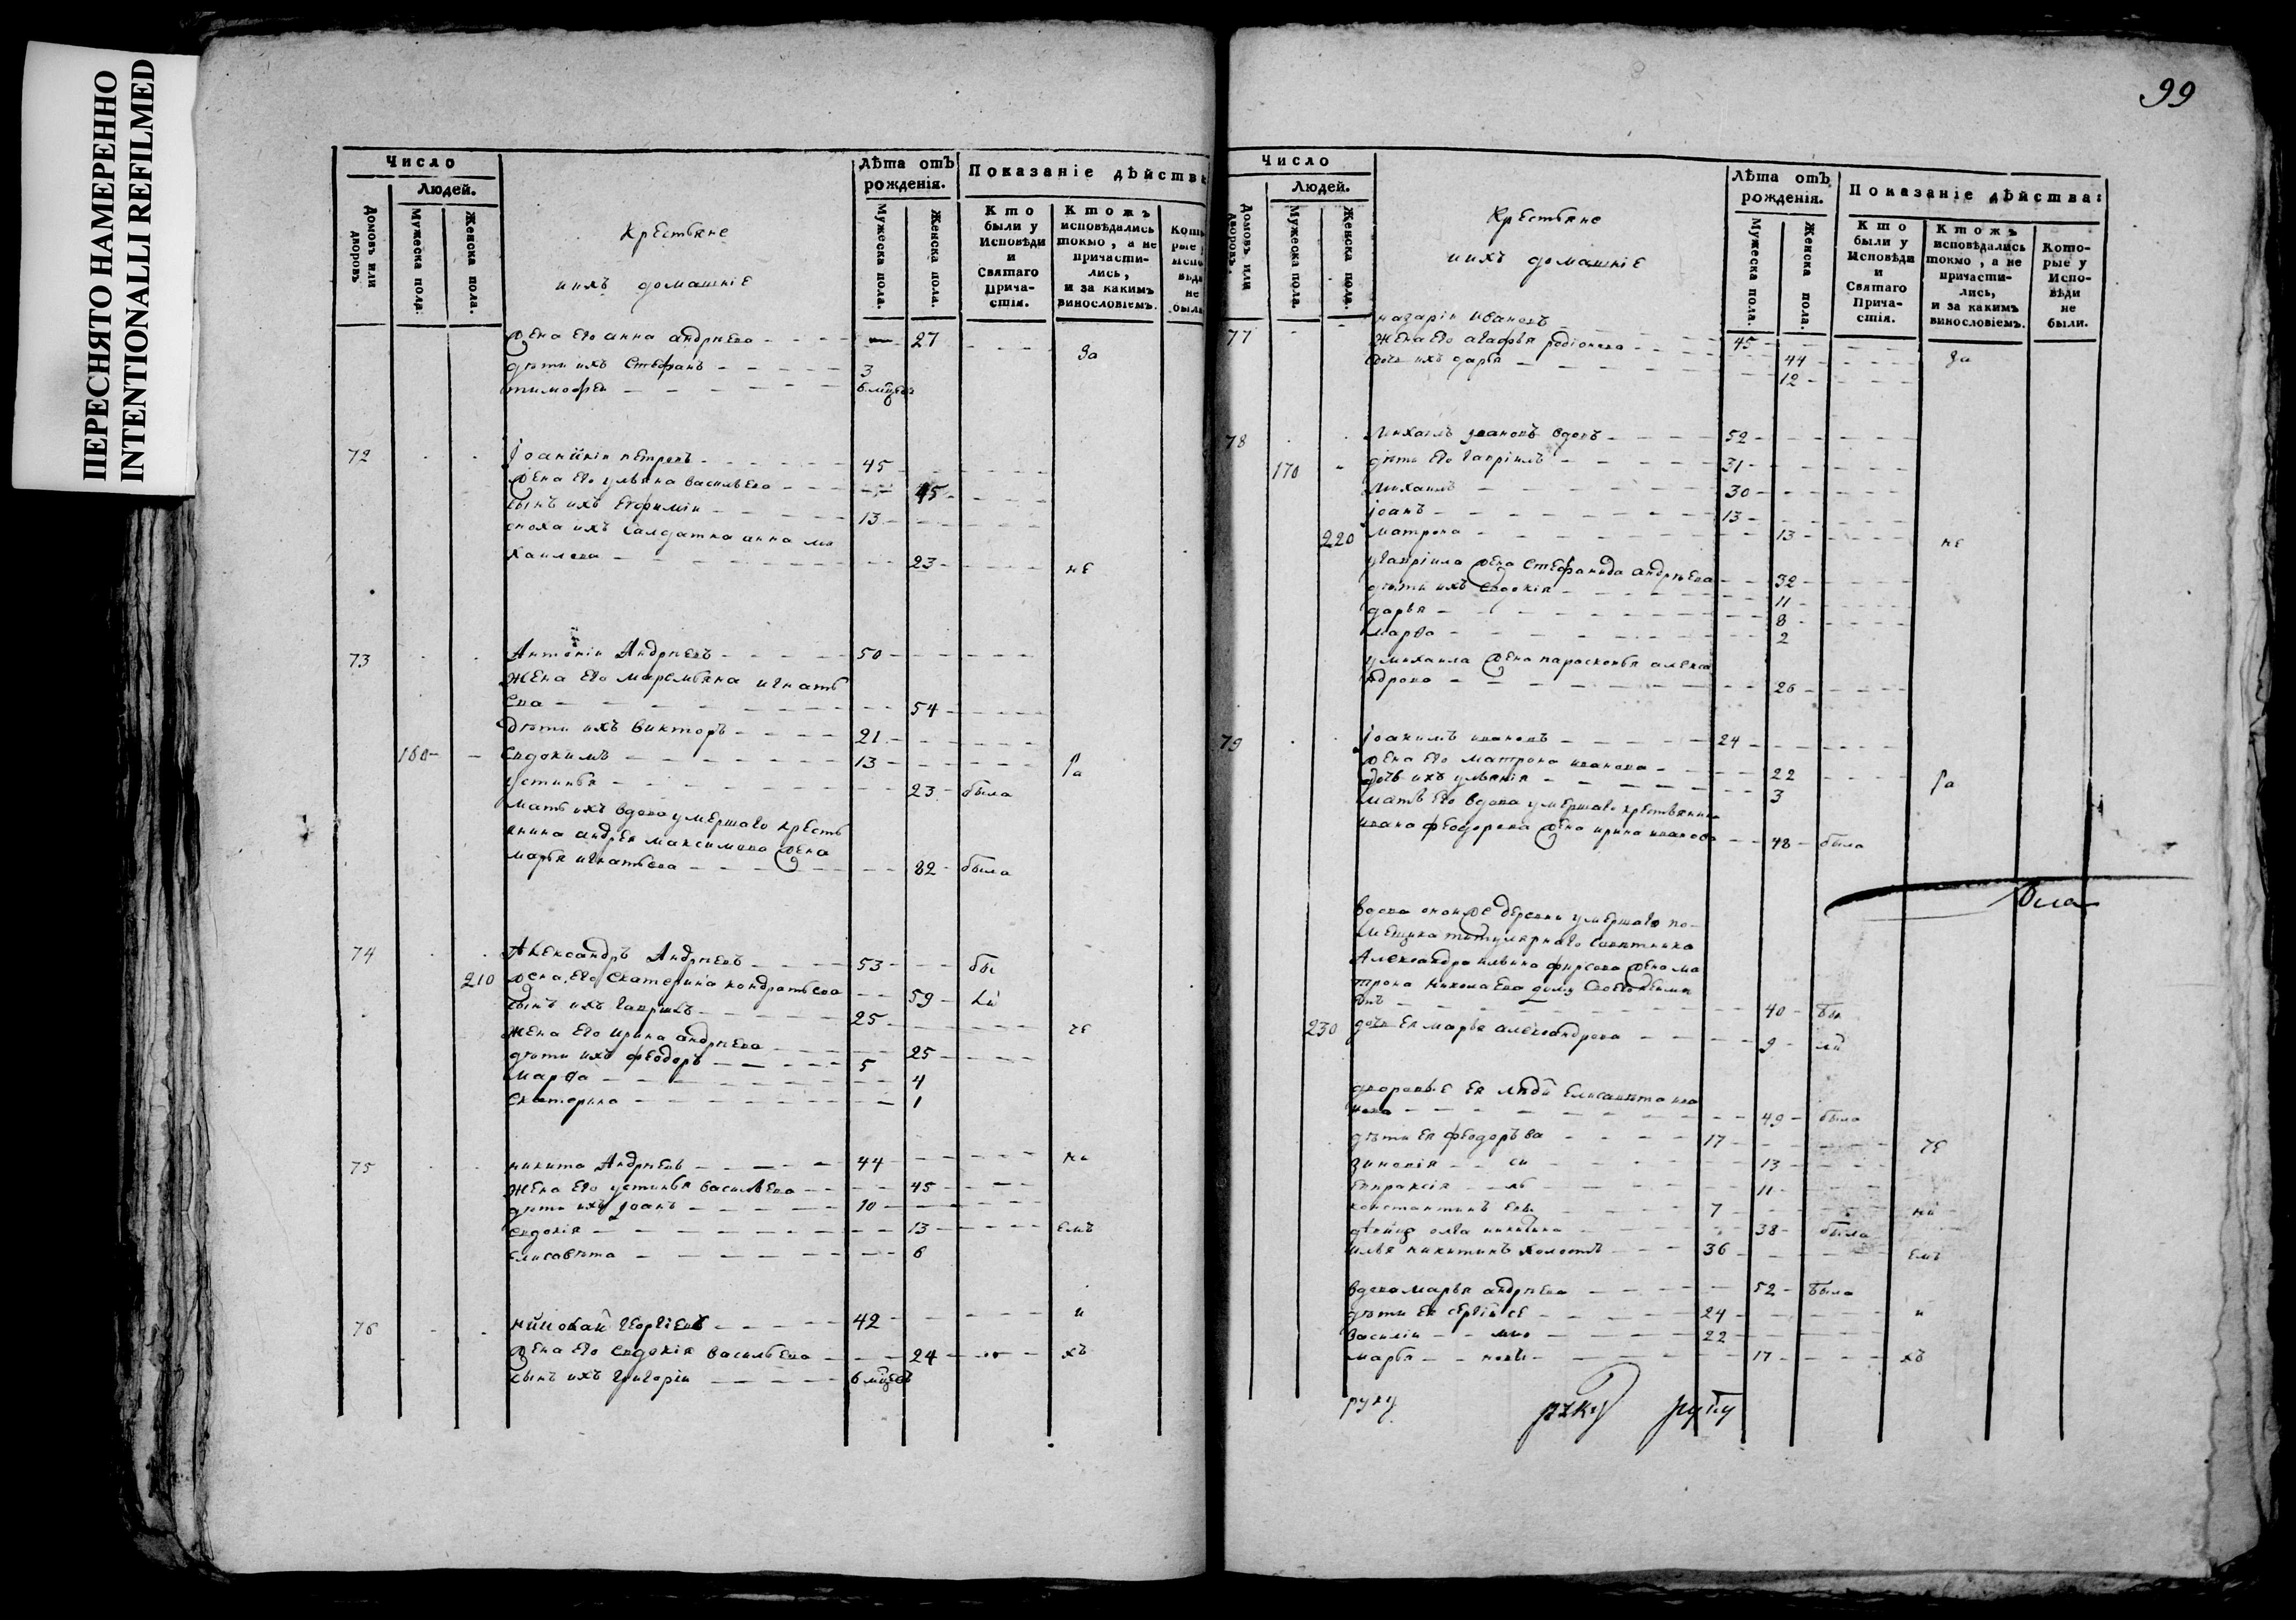 ПЕРЕСНЯТО НАМЕРЕННО
INTENTIONALLI REFILMED
99
Число
Людей.
Домовъ или дворовъ
Мужеска пола.
Женска пола.
Крестьяне
и ихъ домашніе
Лѣта отъ рожденія.
Мужеска пола.
Женска пола.
Показаніе дѣйства
Кто были у Исповѣди и Святаго Причастія.
Ктожъ исповѣдались токмо, а не причастились, и за какимъ винословіемъ.
жена его анна андрѣева 27
за
дѣти ихъ Стефанъ 3
тимофей 6 мцевъ
72 Іоанікій петровъ 45
жена его ульяна васильева 45
сынъ ихъ Ефимій 13
сноха ихъ Салдатка анна ми
хаилова 23 не
73 Антоній Андрѣевъ 50
жена его маремьяна игнать
ева 54
дѣти ихъ викторъ 21
160 Евдокимъ 13 ра
устинья 23 была
мать ихъ вдова умершаго кресть
янина андрея максимова жена
марья игнатьева 82 была
74 Александръ Андрѣевъ 53 бы
210 жена его Екатерина кондратьева 59 ли
сынъ ихъ гавріилъ 25
че
жена его ирина андрѣева 25
дѣти ихъ феодоръ 5
марфа 4
Екатерина 1
75 никита Андрѣевъ 44
жена его устинья васильева 45
дѣти ихъ Іоанъ 10
евдокія 13 емъ
елисавѣта 6
76 георгіевъ 42 и
жена его Евдокія васильева 24 хъ
сынъ ихъ григорій 6 мцевъ
Число
Людей.
Домовъ или дворовъ.
Мужеска пола.
Женска пола.
Крестьяне
и ихъ домашніе
Лѣта отъ рожденія.
Мужеска пола.
Женска пола.
Показаніе дѣйства:
Кто были у Исповѣди и Святаго Причастія.
Ктожъ исповѣдались токмо, а не причастились, и за какимъ винословіемъ.
Которые у Исповѣди не были.
77 назарій ивановъ 45
жена его агафья родіонова 44 за
дочь ихъ дарья 12
78 михаилъ ивановъ вдовъ 52
170 дѣти его гавріилъ 31
михаилъ 30
іоанъ 13
220 матрона 13 не
у гавріила жена Стефанида андрѣева 32
дѣти ихъ Евдокія 11
дарья 8
марфа 2
у михаила жена парасковья алекса
ндрова 26
79 Іоакимъ ивановъ 24
жена его матрона иванова 22
дочь ихъ ульянія 3 ра
мать его вдова умершаго крестьянина
ивана феодорова жена ирина иванова 48 была
вдова оной же деревни умершаго по-
мещика титулярнаго совѣтника
Александра ильина фирсова жена ма
трона николаева 40 бы
230 дочь ея марья александрова 9 ли
дворовые ея люди Елисавѣта ива
нова 49 была
дѣти ея феодоръ 17 че
зиновія 13
Евпраксія 11
константинъ 7
ольга никитина 38 была
илья никитинъ холостъ 36 емъ
вдова марья андрѣева 52 была
дѣти ея сергій 24 и
василій 22
марья 17 хъ
руку
руку